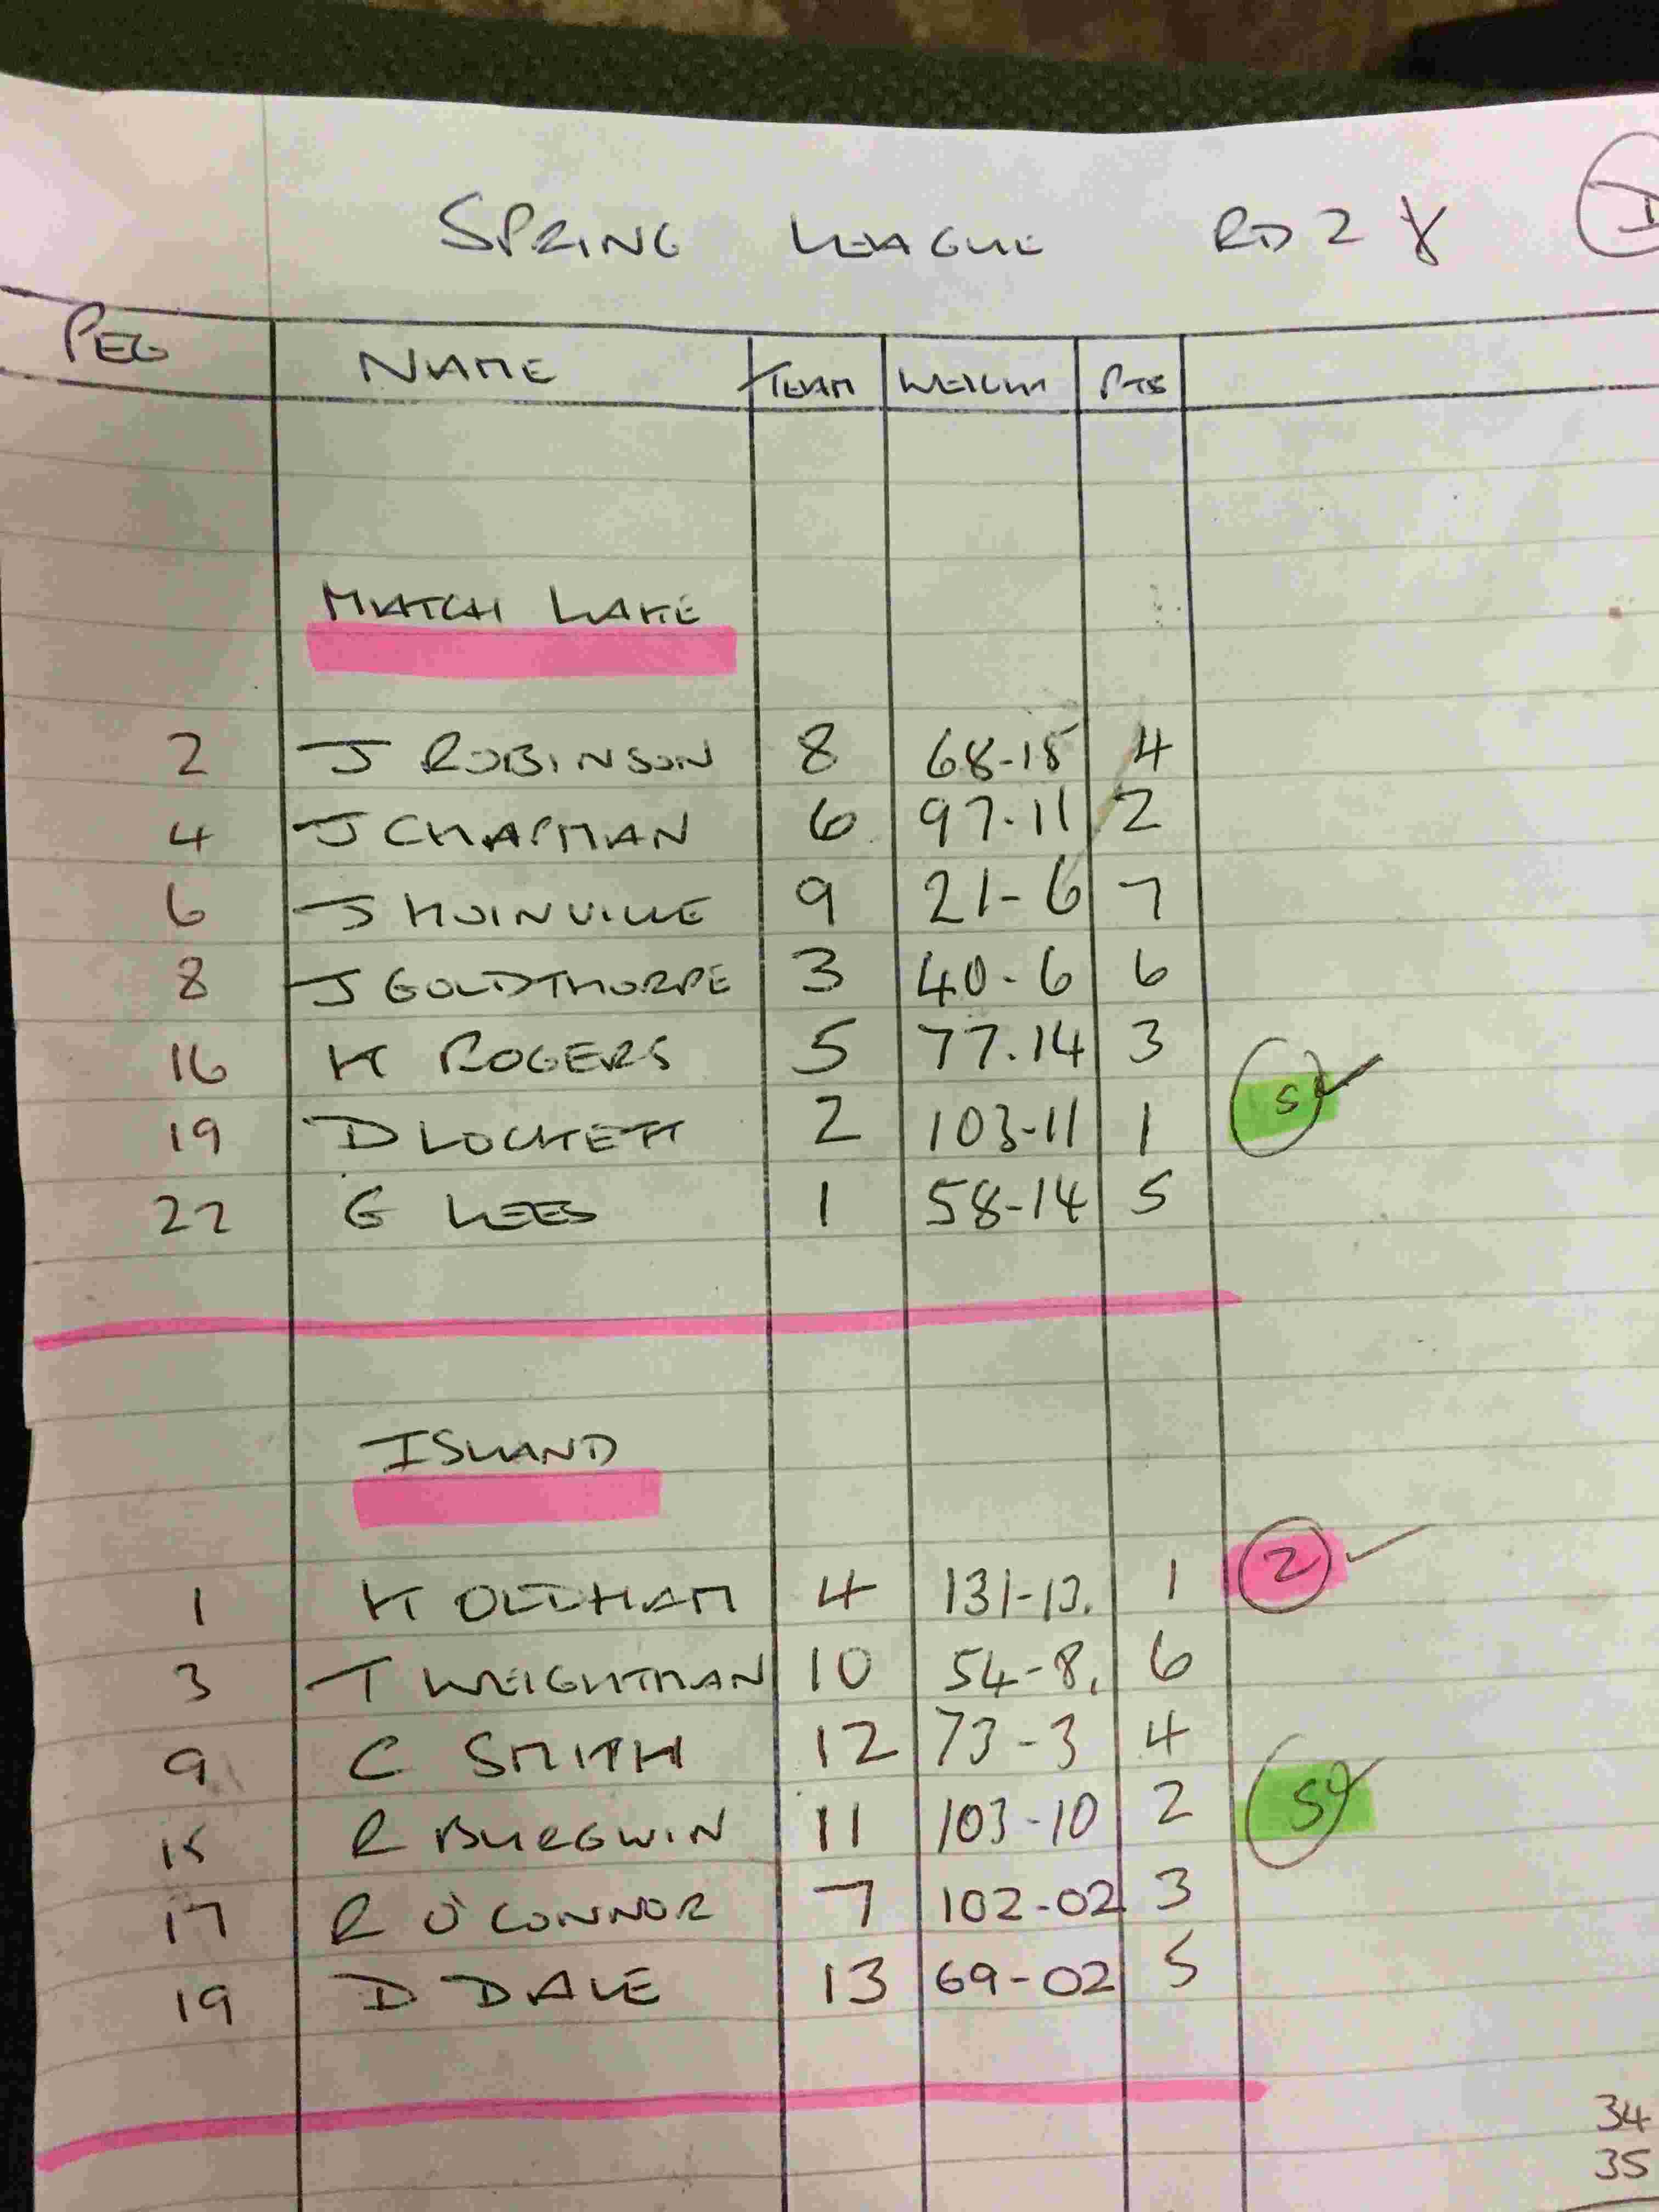 SPRING LEAGUE RD 2
PEG NAME TEAM WEIGHT PTS
MATCH LAKE
2 J ROBINSON 8 68-15 4
4 J CHAPMAN 6 97-11 2
6 J HOINVILLE 9 21-6 7
8 J GOLDTHORPE 3 40-6 6
16 K ROGERS 5 77-14 3
19 D LOCKETT 2 103-11 1
22 G LEES 1 58-14 5
ISLAND
1 K OLDHAM 4 131-13. 1 2
3 T WEIGHTMAN 10 54-8. 6
9 C SMITH 12 73-3 4
15 R BURGWIN 11 103-10 2
17 R O'CONNOR 7 102-02 3
19 D DALE 13 69-02 5
34
35